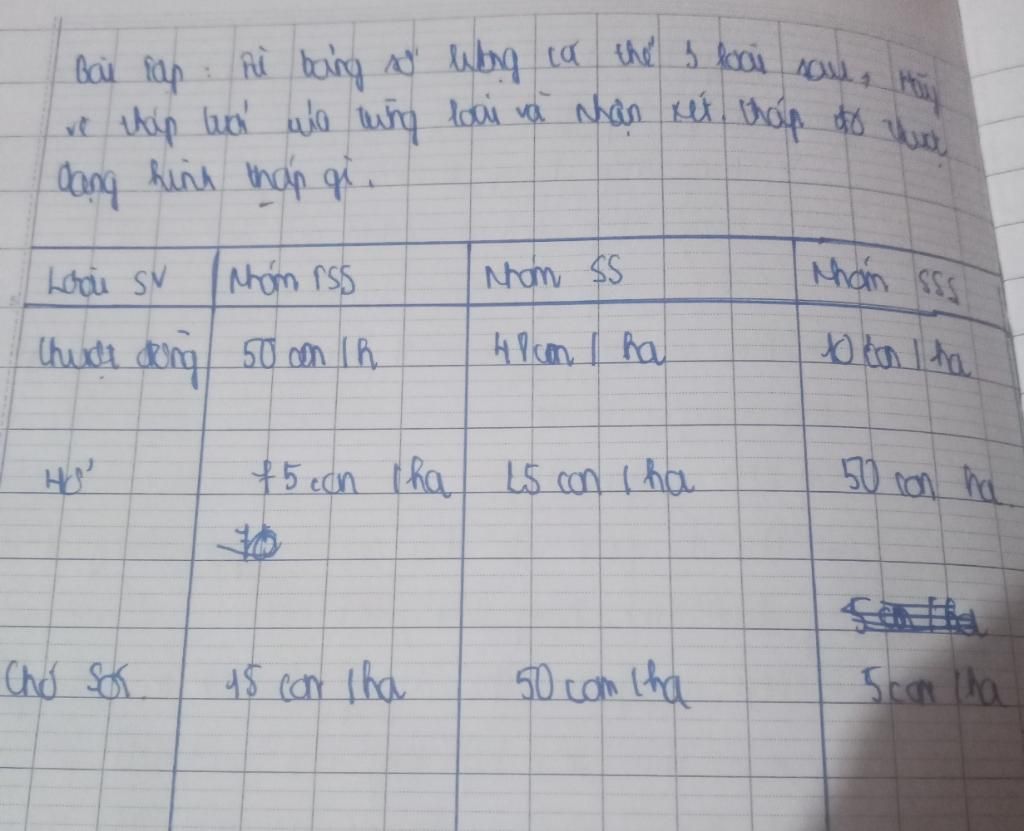 Bài tập : Từ bảng số lượng cá thể 3 loài sau, Hãy
vẽ tháp tuổi của từng loài và nhận xét tháp đó thuộc
dạng hình tháp gì.
Loài SV Nhóm TSS Nhóm SS Nhóm SSS
Chuột đồng 50 con / h 48 con / ha 10 con / ha
Hổ 75 con / ha 25 con / ha 50 con ha
Chó Sói 15 con / ha 50 con / ha 5 con / ha